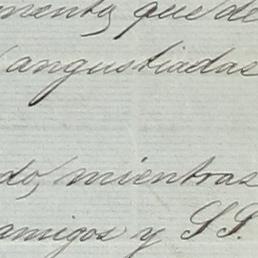 mente, que de
angustiadas
do, mientras
amigos y S.S.